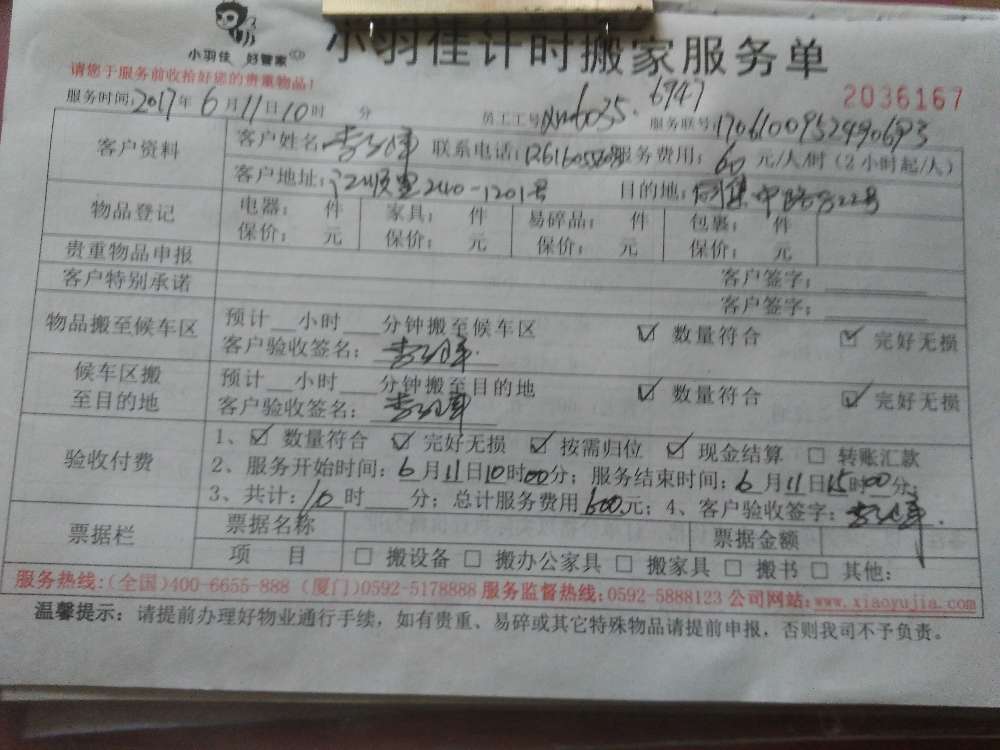 小羽佳 好管家
小羽佳计时搬家服务单
请您于服务前收拾好您的贵重物品!
2036167
服务时间:2017年6月11日10时 分 员工工号 xm6035. 6947 服务联号:
客户资料
客户姓名: 联系电话: 服务费用:60元/人/时(2小时起/人)
客户地址: 2440-1201号 目的地: 中路 22号
物品登记
电器: 件 家具: 件 易碎品: 件 包裹: 件
保价: 元 保价: 元 保价: 元 保价: 元
贵重物品申报
客户签字:
客户特别承诺
客户签字:
物品搬至候车区
预计__小时___分钟搬至候车区 ☑ 数量符合 ☑ 完好无损
客户验收签名:
候车区搬
至目的地
预计__小时___分钟搬至目的地 ☑ 数量符合 ☑ 完好无损
客户验收签名:
验收付费
1、☑ 数量符合 ☑ 完好无损 ☑ 按需归位 ☑ 现金结算 □ 转账汇款
2、服务开始时间:6月11日10时00分;服务结束时间:6月11日15时00分;
3、共计:10时 分;总计服务费用600元;4、客户验收签字:
票据栏
票据名称 票据金额
项 目 □ 搬设备 □ 搬办公家具 □ 搬家具 □ 搬书 □ 其他:
服务热线:(全国)400-6655-888 (厦门)0592-5178888 服务监督热线:0592-5888123 公司网站:www.xiaoyujia.com
温馨提示:请提前办理好物业通行手续,如有贵重、易碎或其它特殊物品请提前申报,否则我司不予负责。